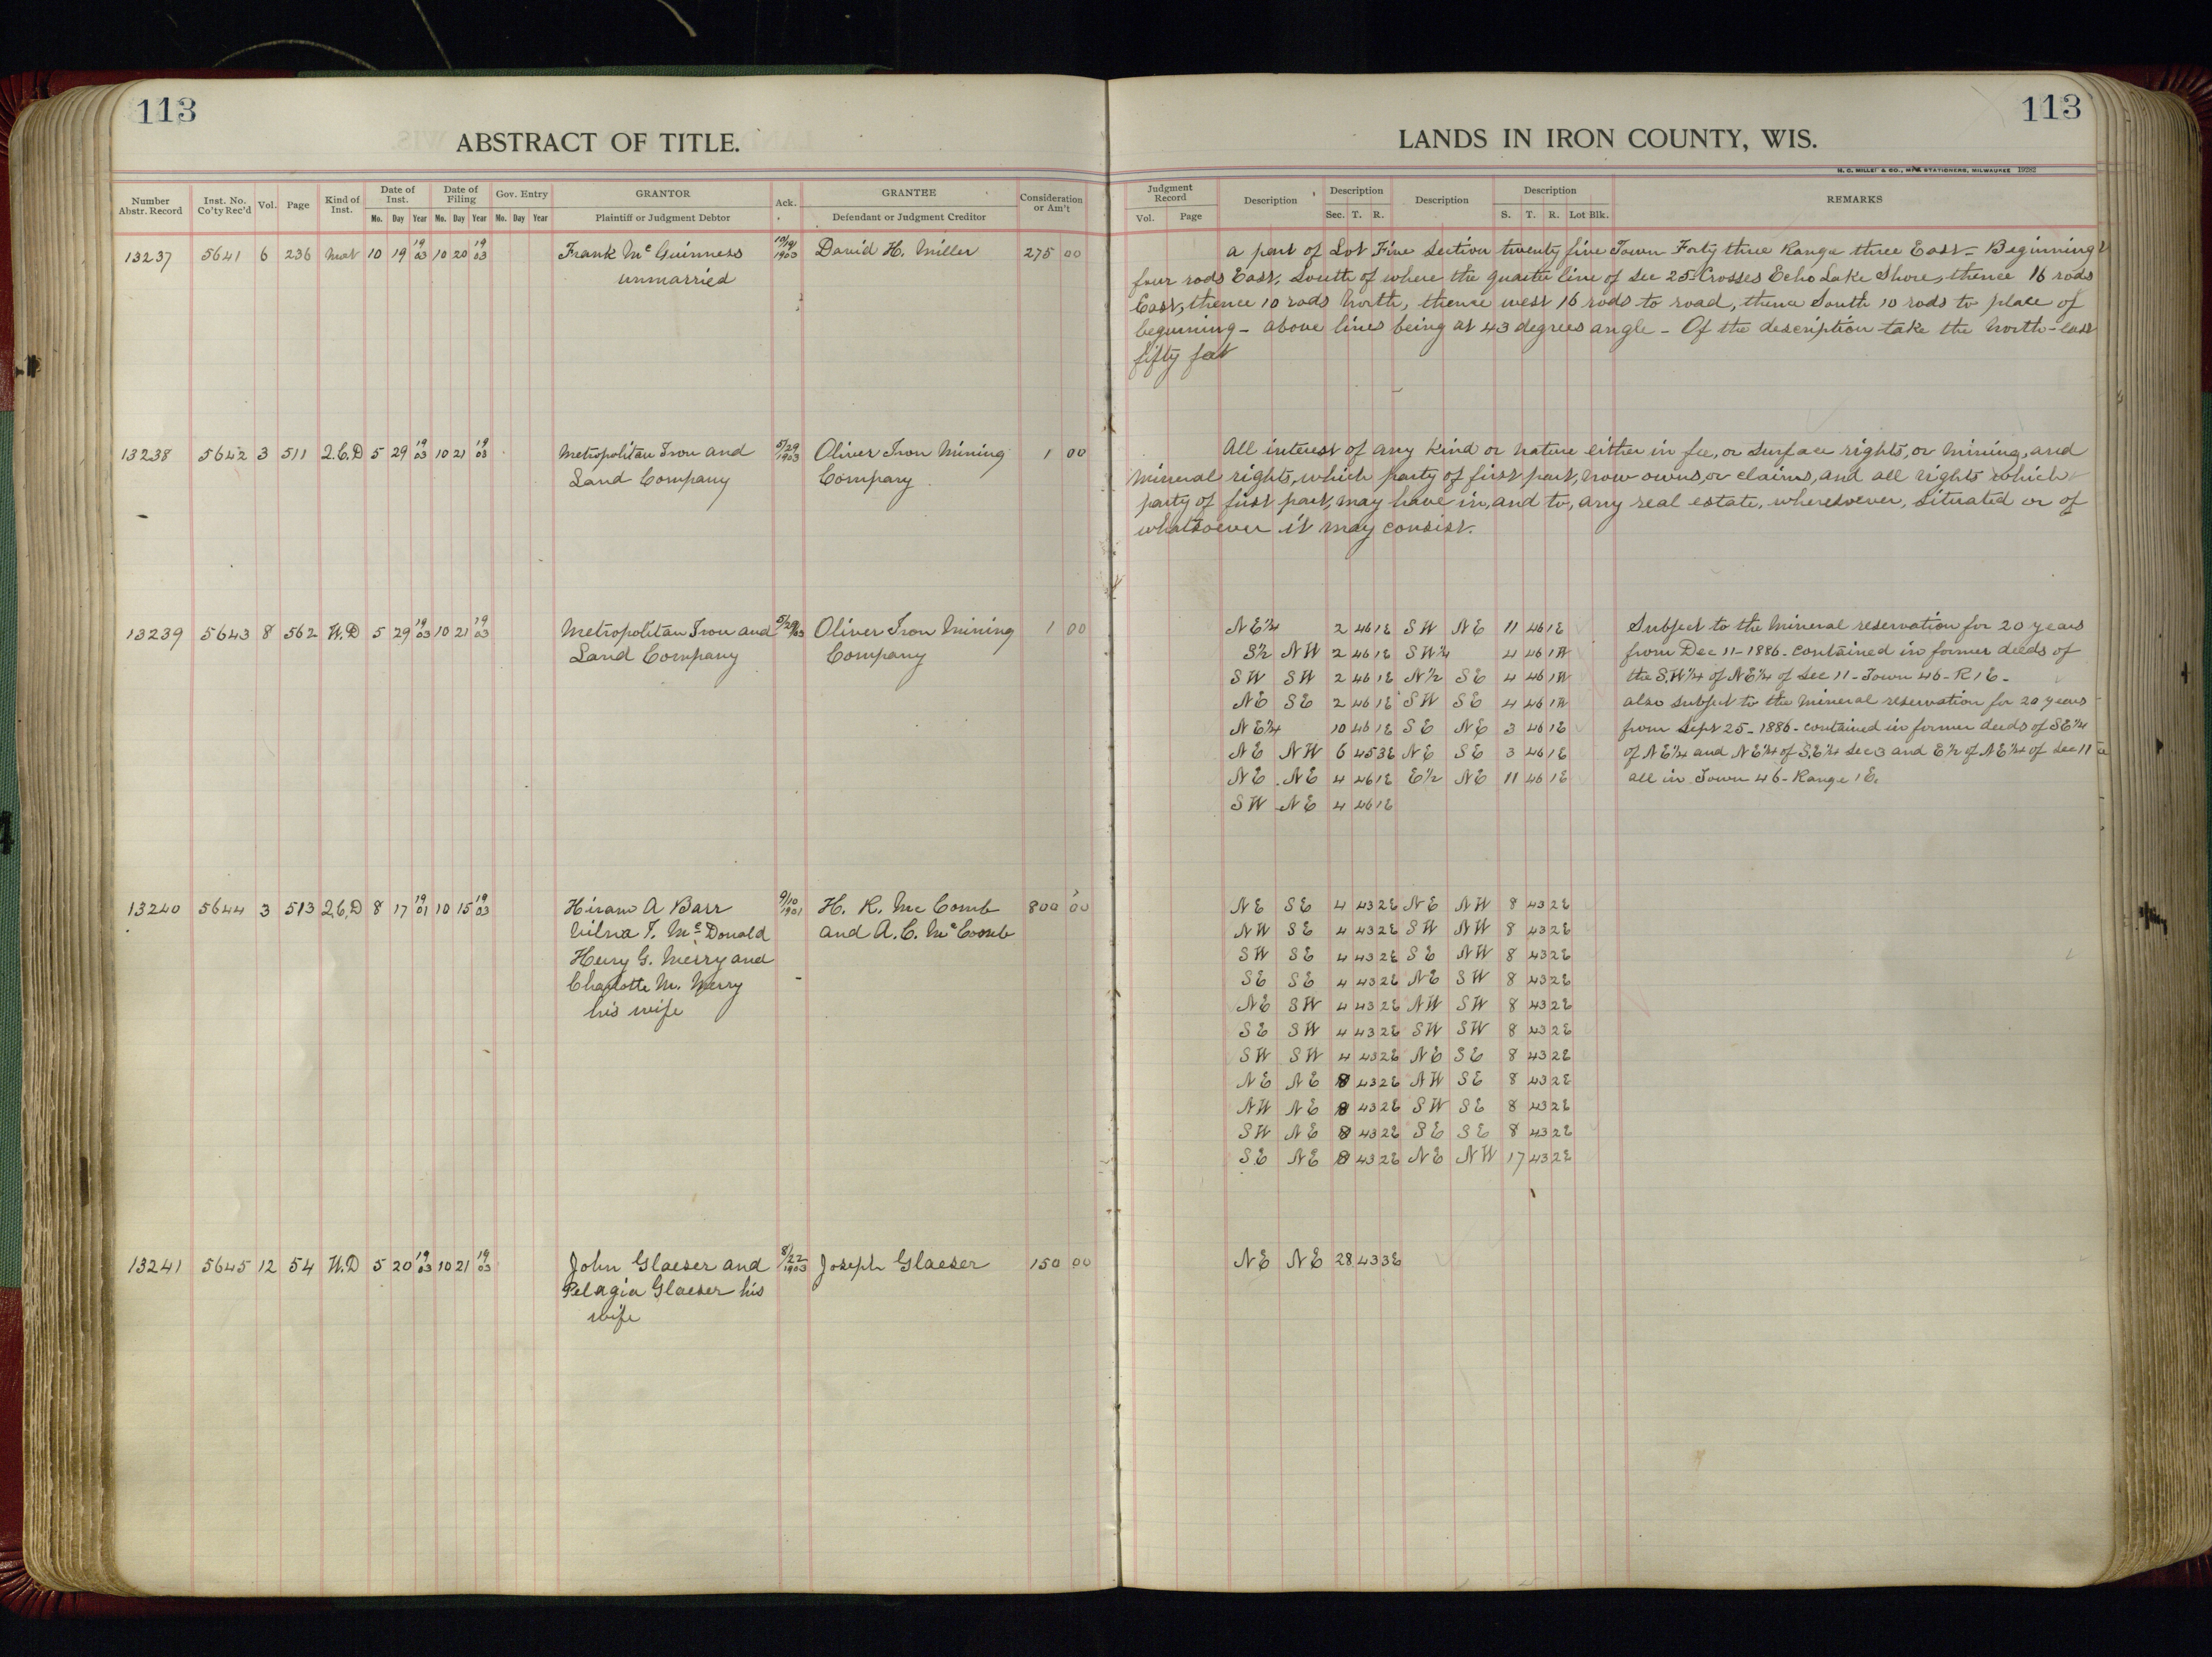 113
ABSTRACT OF TITLE.
Number Abstr. Record | Inst. No. Co'ty Rec'd | Vol. | Page | Kind of Inst. | Date of Inst. Mo. Day Year | Date of Filing Mo. Day Year | Gov. Entry Mo. Day Year | GRANTOR Plaintiff or Judgment Debtor | Ack. | GRANTEE Defendant or Judgment Creditor | Consideration or Am't
13237 5641 6 236 Mort 10 19 19/03 10 20 19/03 Frank McGuinness 10/19/1903 David H. Miller 275 00
unmarried
13238 5642 3 511 Q.C.D 5 29 19/03 10 21 19/03 Metropolitan Iron and 5/29/1903 Oliver Iron Mining 1 00
Land Company Company
13239 5643 8 562 W.D 5 29 19/03 10 21 19/03 Metropolitan Iron and 5/29/03 Oliver Iron Mining 1 00
Land Company Company
13240 5644 3 513 Q.C.D 8 17 19/01 10 15 19/03 Hiram A Barr 9/10/1901 H. K. McComb 800 00
T. McDonald and A. C. McComb
Henry G. Merry and
Charlotte M. Merry
his wife
13241 5645 12 54 W.D 5 20 19/03 10 21 19/03 John Glaeser and 8/22/1903 Joseph Glaeser 150 00
Pelagia Glaeser his
wife
113
LANDS IN IRON COUNTY, WIS.
M. C. MILLER & CO., MFG. STATIONERS, MILWAUKEE 19282
Judgment Record Vol. Page | Description | Description Sec. T. R. | Description | Description S. T. R. Lot Blk. | REMARKS
a part of Lot Five Section twenty five Town Forty three Range three East - Beginning
four rods East, South of where the quarter line of Sec 25 Crosses Echo Lake Shore, thence 16 rods
East, thence 10 rods North, thence west 16 rods to road, thence South 10 rods to place of
beginning - above lines being at 43 degrees angle - Of the description take the North-east
fifty feet
All interest of any kind or nature either in fee, or surface rights, or mining, and
mineral rights, which party of first part, now owns, or claims, and all rights which
party of first part, may have in, and to, any real estate, wheresoever, situated or of
whatsoever it may consist.
NE¼ 2 46 1E SW NE 11 46 1E Subject to the mineral reservation for 20 years
S½ NW 2 46 1E SW¼ 4 46 1W from Dec 11-1886 - contained in former deeds of
SW SW 2 46 1E N½ SE 4 46 1W the S.W¼ of NE¼ of Sec 11 - Town 46 - R 1 E -
NE SE 2 46 1E SW SE 4 46 1W also subject to the mineral reservation for 20 years
NE¼ 10 46 1E SE NE 3 46 1E from Sept 25-1886 - contained in former deeds of SE¼
NE NW 6 45 3E NE SE 3 46 1E of NE¼ and NE¼ of S.E¼ Sec 3 and E½ of NE¼ of Sec 11
NE NE 4 46 1E E½ NE 11 46 1E all in Town 46 - Range 1 E.
SW NE 4 46 1E
NE SE 4 43 2E NE NW 8 43 2E
NW SE 4 43 2E SW NW 8 43 2E
SW SE 4 43 2E SE NW 8 43 2E
SE SE 4 43 2E NE SW 8 43 2E
NE SW 4 43 2E NW SW 8 43 2E
SE SW 4 43 2E SW SW 8 43 2E
SW SW 4 43 2E NE SE 8 43 2E
NE NE 8 43 2E NW SE 8 43 2E
NW NE 8 43 2E SW SE 8 43 2E
SW NE 8 43 2E SE SE 8 43 2E
SE NE 8 43 2E NE NW 17 43 2E
NE NE 28 43 3E